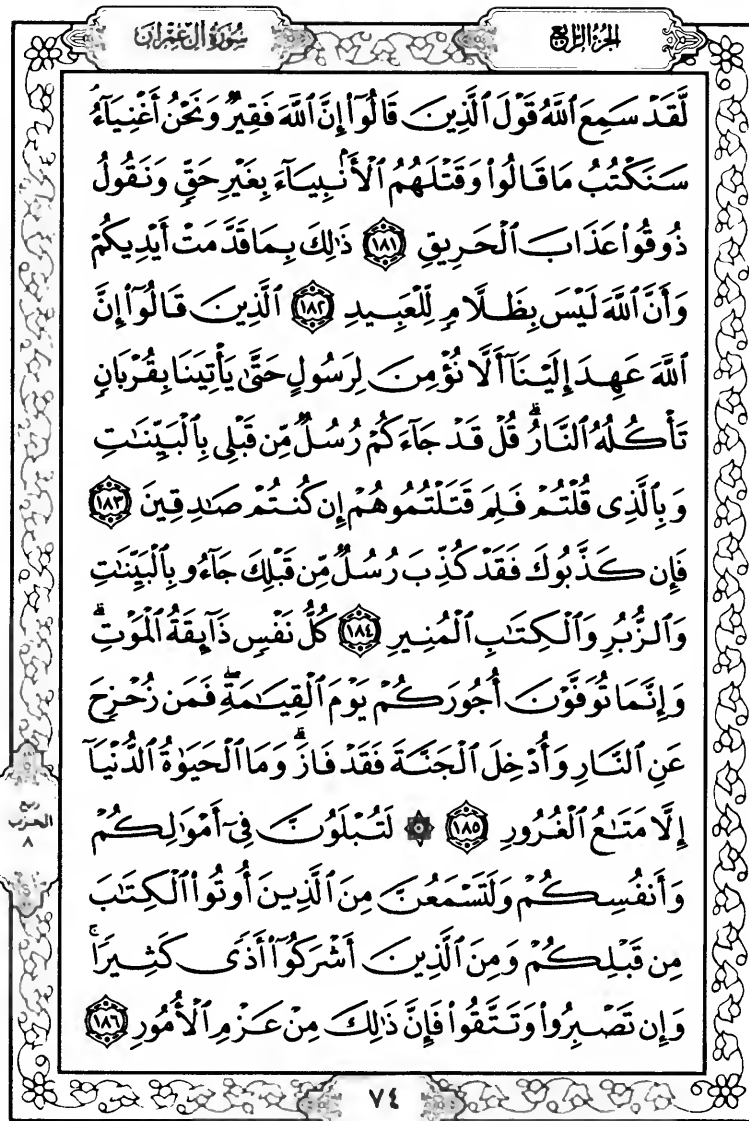 الجزء الرابع
سورة آل عمران
لَّقَدْ سَمِعَ ٱللَّهُ قَوْلَ ٱلَّذِينَ قَالُوٓا۟ إِنَّ ٱللَّهَ فَقِيرٌ وَنَحْنُ أَغْنِيَآءُ
سَنَكْتُبُ مَا قَالُوا۟ وَقَتْلَهُمُ ٱلْأَنۢبِيَآءَ بِغَيْرِ حَقٍّ وَنَقُولُ
ذُوقُوا۟ عَذَابَ ٱلْحَرِيقِ ﴿١٨١﴾ ذَٰلِكَ بِمَا قَدَّمَتْ أَيْدِيكُمْ
وَأَنَّ ٱللَّهَ لَيْسَ بِظَلَّامٍ لِّلْعَبِيدِ ﴿١٨٢﴾ ٱلَّذِينَ قَالُوٓا۟ إِنَّ
ٱللَّهَ عَهِدَ إِلَيْنَآ أَلَّا نُؤْمِنَ لِرَسُولٍ حَتَّىٰ يَأْتِيَنَا بِقُرْبَانٍ
تَأْكُلُهُ ٱلنَّارُ ۗ قُلْ قَدْ جَآءَكُمْ رُسُلٌ مِّن قَبْلِى بِٱلْبَيِّنَٰتِ
وَبِٱلَّذِى قُلْتُمْ فَلِمَ قَتَلْتُمُوهُمْ إِن كُنتُمْ صَٰدِقِينَ ﴿١٨٣﴾
فَإِن كَذَّبُوكَ فَقَدْ كُذِّبَ رُسُلٌ مِّن قَبْلِكَ جَآءُو بِٱلْبَيِّنَٰتِ
وَٱلزُّبُرِ وَٱلْكِتَٰبِ ٱلْمُنِيرِ ﴿١٨٤﴾ كُلُّ نَفْسٍ ذَآئِقَةُ ٱلْمَوْتِ ۗ
وَإِنَّمَا تُوَفَّوْنَ أُجُورَكُمْ يَوْمَ ٱلْقِيَٰمَةِ ۖ فَمَن زُحْزِحَ
عَنِ ٱلنَّارِ وَأُدْخِلَ ٱلْجَنَّةَ فَقَدْ فَازَ ۗ وَمَا ٱلْحَيَوٰةُ ٱلدُّنْيَآ
إِلَّا مَتَٰعُ ٱلْغُرُورِ ﴿١٨٥﴾ ۞ لَتُبْلَوُنَّ فِىٓ أَمْوَٰلِكُمْ
وَأَنفُسِكُمْ وَلَتَسْمَعُنَّ مِنَ ٱلَّذِينَ أُوتُوا۟ ٱلْكِتَٰبَ
مِن قَبْلِكُمْ وَمِنَ ٱلَّذِينَ أَشْرَكُوٓا۟ أَذًى كَثِيرًا ۚ
وَإِن تَصْبِرُوا۟ وَتَتَّقُوا۟ فَإِنَّ ذَٰلِكَ مِنْ عَزْمِ ٱلْأُمُورِ ﴿١٨٦﴾
ربع
الحزب
٨
٧٤